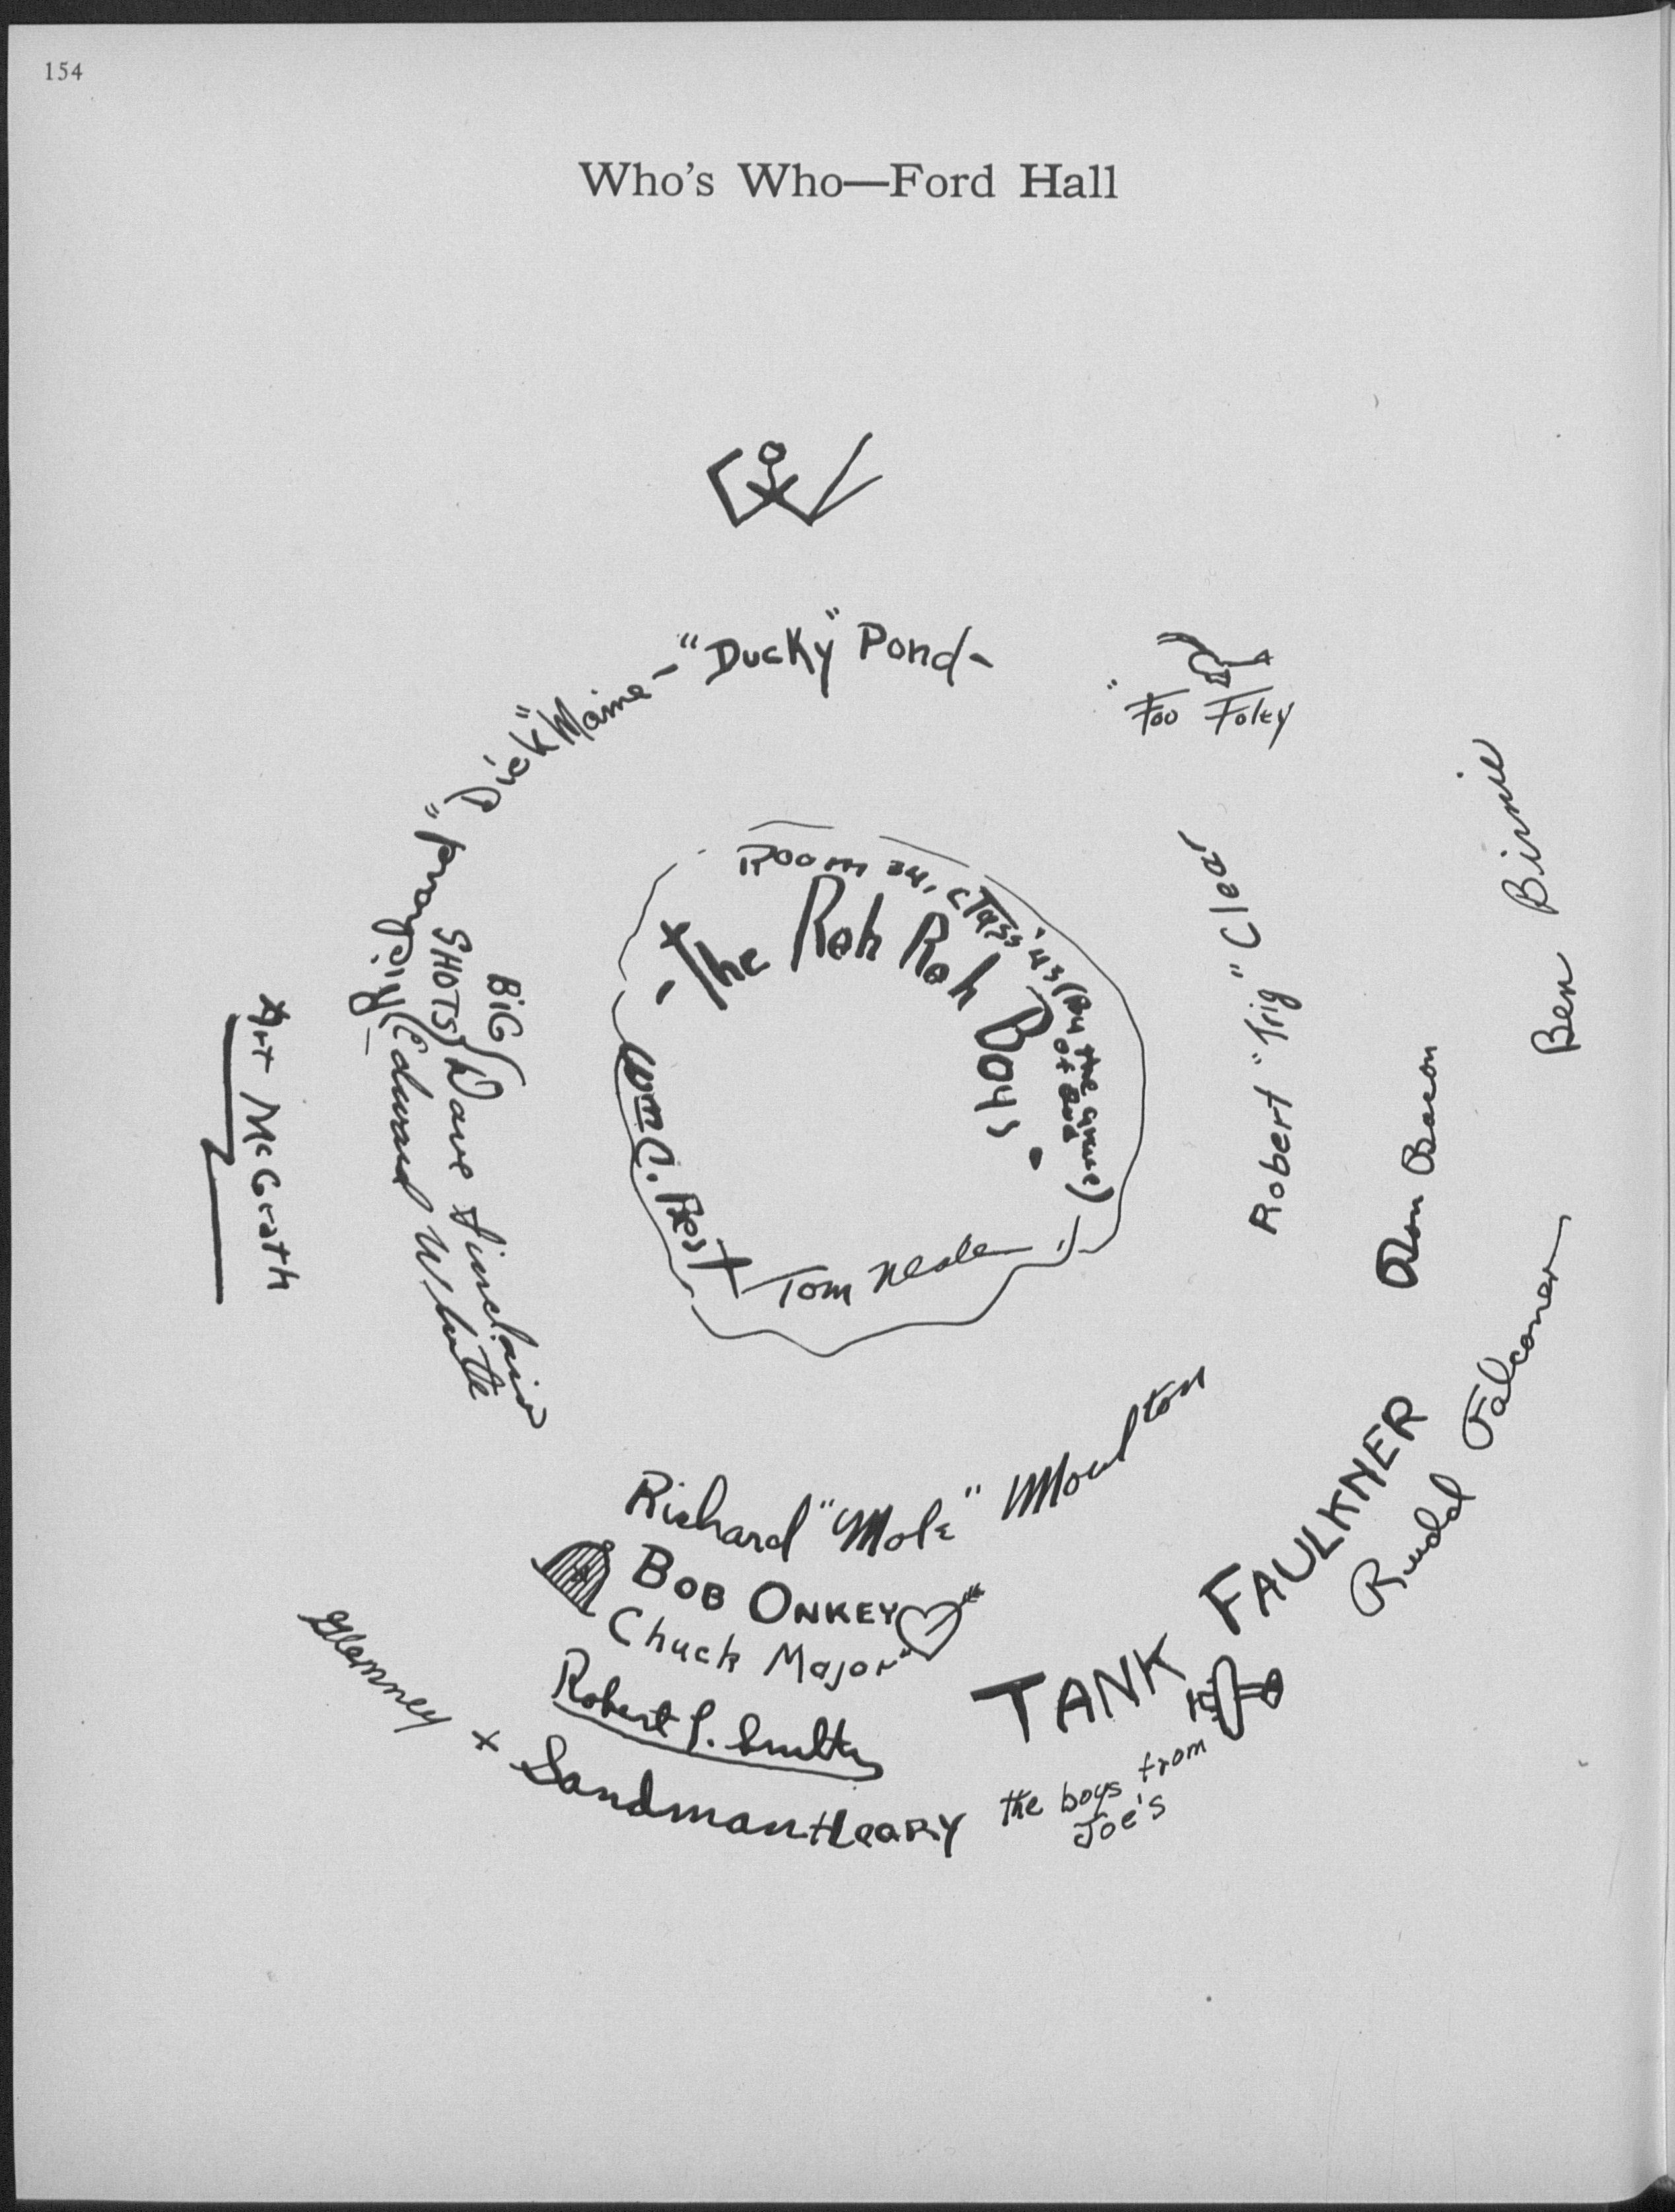 154
Who's Who—Ford Hall
-"Ducky" Pond-
"Dick" Maine
"Foo Foley
Room 34, class '43 (By the grace of God)
- The Rah Rah Boys.
Wm C. Best
Tom Neale
Robert "Trig" Clear
Ben Birnie
Don Bacon
Rudd Falconer
BIG SHOTS
Dave Sinclair
Edward White
Art McGrath
Richard "Mole" Moulton
BOB ONKEY
Chuck Major
Robert J. Smith
TANK FAULKNER
Glenney + Sandman + Leary
the boys from
Joe's